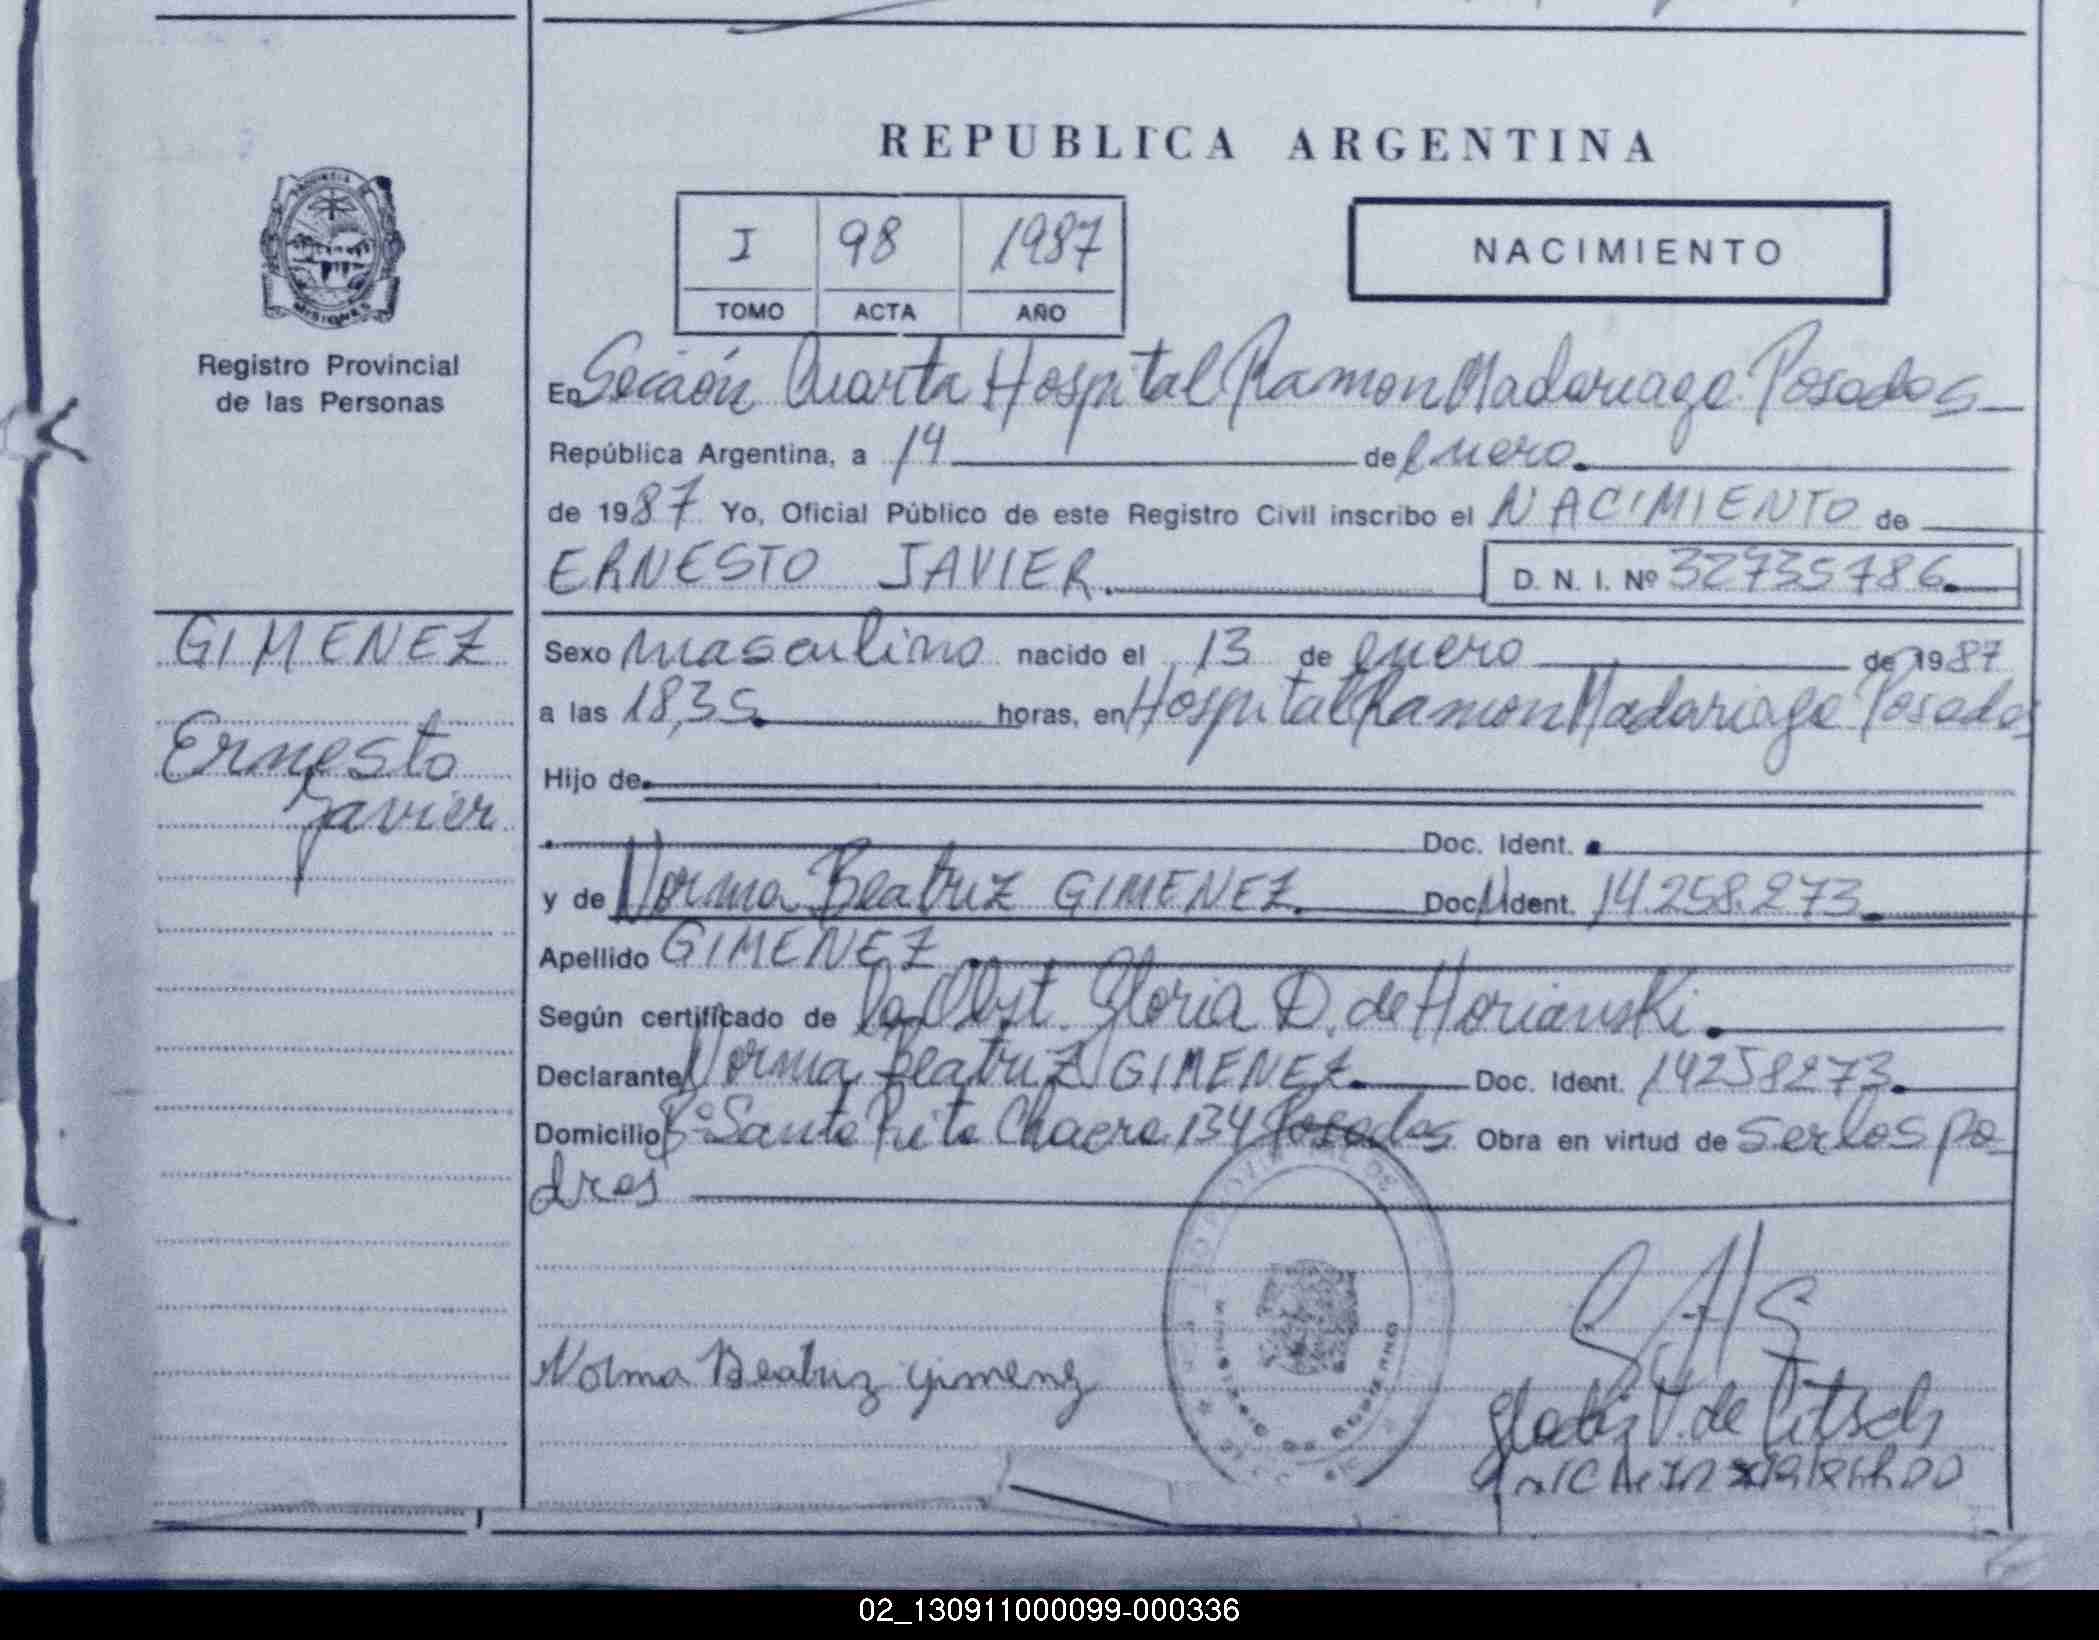 REPUBLICA ARGENTINA
PROVINCIA DE
MISIONES
Registro Provincial
de las Personas
I 98 1987
TOMO ACTA AÑO
NACIMIENTO
En Sección Cuarta Hospital Ramon Madariaga Posadas
República Argentina, a 14 de Enero
de 1987 Yo, Oficial Público de este Registro Civil inscribo el NACIMIENTO de
ERNESTO JAVIER D. N. I. Nº 32735786
GIMENEZ
Ernesto
Javier
Sexo masculino nacido el 13 de enero de 1987
a las 18,35 horas, en Hospital Ramon Madariaga Posadas
Hijo de
Doc. Ident.
y de Norma Beatriz GIMENEZ Doc. Ident. 14.258.273
Apellido GIMENEZ
Según certificado de la Obst. Gloria D. de Horianski
Declarante Norma Beatriz GIMENEZ Doc. Ident. 14258273
Domicilio Bº Santa Rita Chacra 134 Posadas Obra en virtud de ser los pa-
dres
Norma Beatriz Gimenez
V. de
02_130911000099-000336